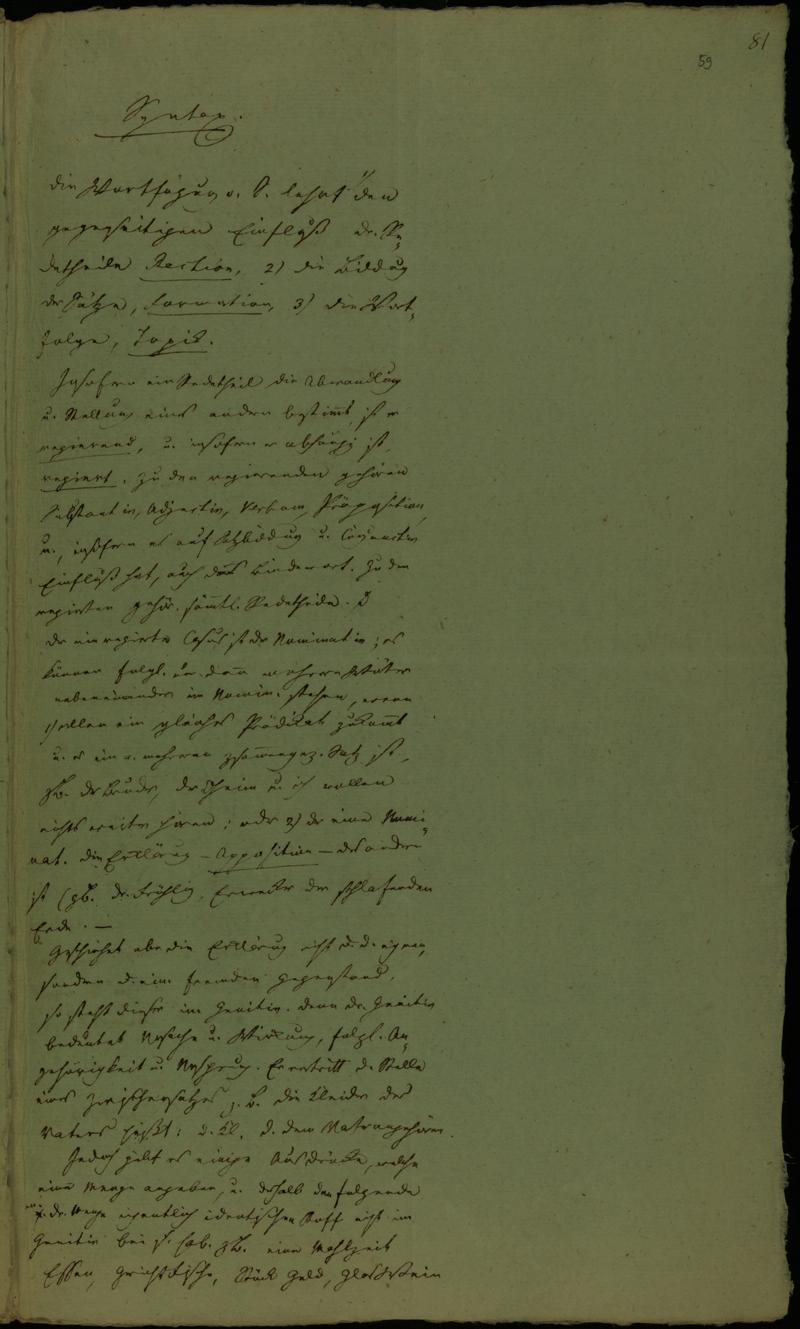 81
59
Syntax.
die Wortfügung o. S. lehrt 1) den
gegenseitigen Einfluß der Re-
detheile Rection, 2) die Bildung
der Sätze, Formation, 3) die Wort-
folge, Topik.
Insofern ein Redetheil die Abwandlung
u. Stellung eines andern bestimmt, ist er
regierend, u. insofern er abhängig ist,
regiert. Zu den regierenden gehören
Substantiv, Adjectiv, Verbum, Präposition,
u., insofern es auf Satzbildung u. Conjunctiv
Einfluß hat, auch das Bindewort. Zu den
regierten gehör. sämtl. Redetheile.
der nie regierte Casus ist der Nominativ; es
können folgl. nur dann mehrere Wörter
nebeneinander im Nomin. stehen, wenn
1) allen ein gleiches Prädikat zukommt
u. es ein v. mehreren zusammengez. Satz ist,
zB. der Bruder, der Oheim u. ich wollen
nichts weiter hören; oder 2) der eine Nomi-
nat. die Erklärung – Apposition – des andern
ist (zB. der Frühling, Erwecker der schlafenden
Erde. —
Geschiehet aber die Erklärung nicht d. d. eignen,
sondern d. einen fremden Gegenstand,
so steht dieser im Genitiv. denn der Genitiv
bedeutet Ursache u. Wirkung, folgl. An-
gehörigkeit u. Ursprung. Er vertritt d. Stelle
eines Zwischensatzes z. B. die Kleider des
Vaters heißt: d. Kl. d. dem Vater angehören.
Jedoch gibt es einige Ausdrücke, welche
eine Menge angeben, u. deshalb den folgenden
der Menge eigentlich identischen Stoff nicht im
Genitiv bei s. hab. zB. eine Mahlzeit
Essen, Gericht Fische, Stück Geld, Glas Wein